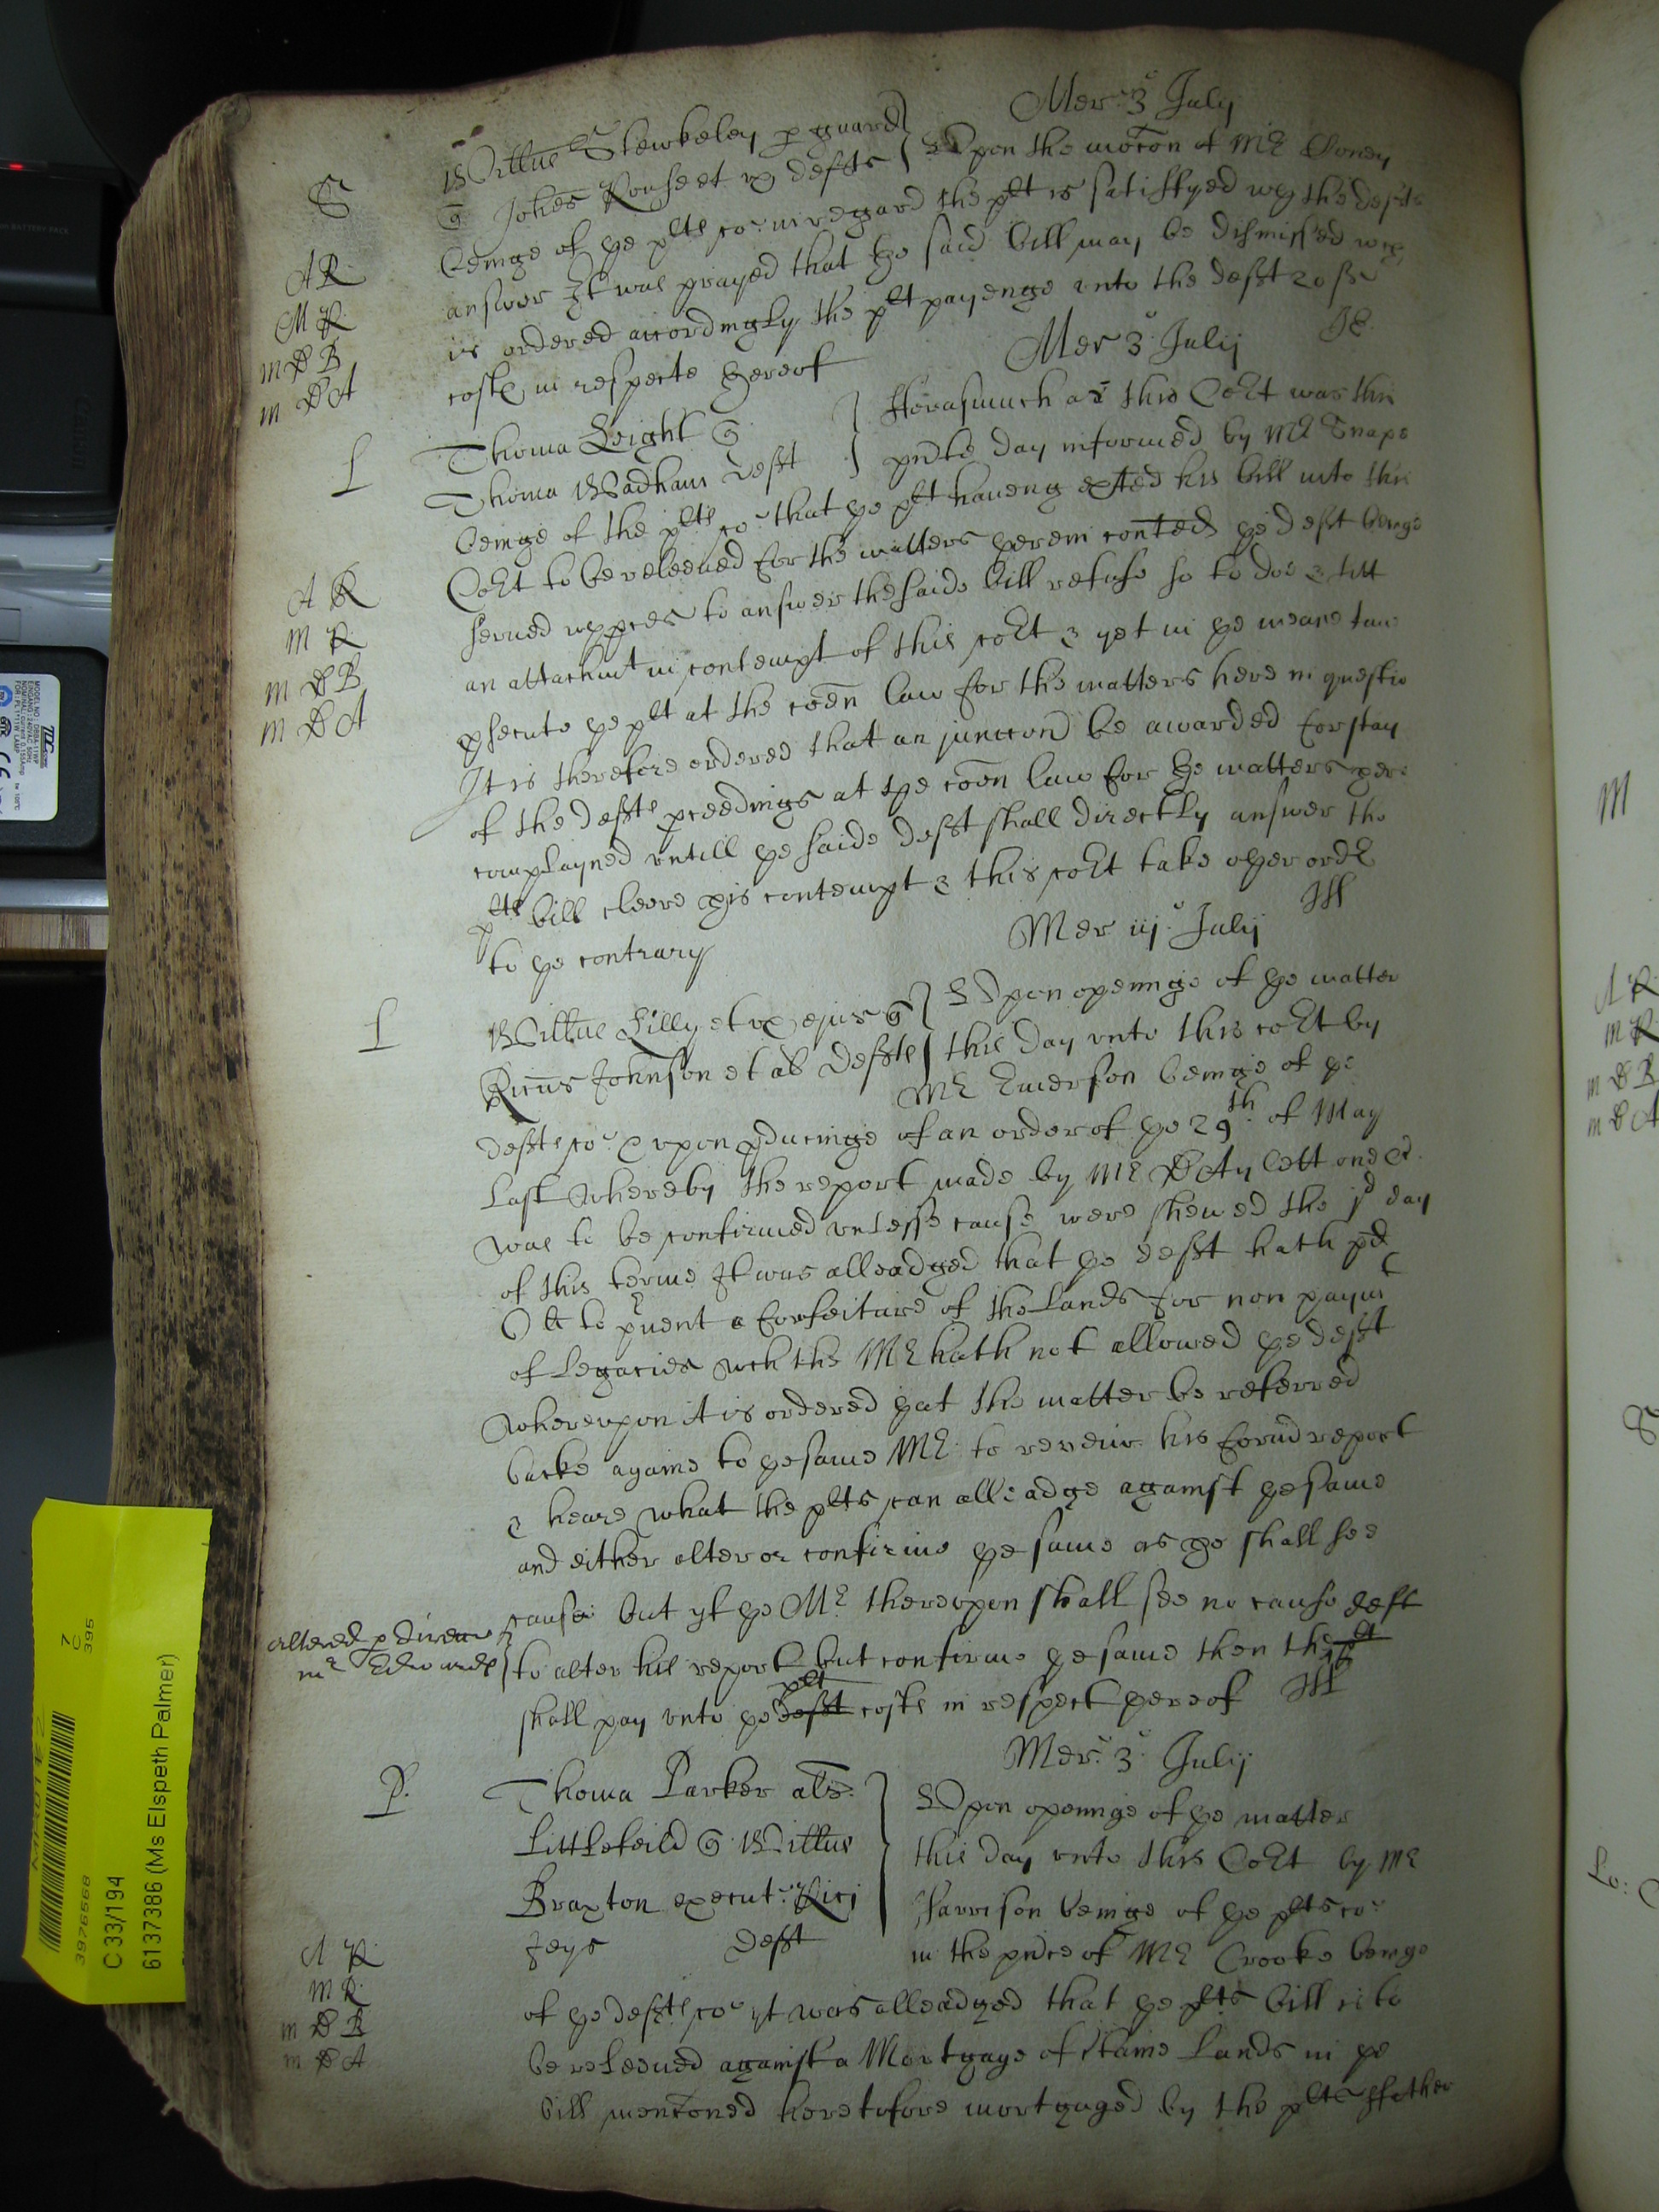 Mer 3° July
S Willus Stewkeley p guard
q Johes Rouse et ux defts Upon the mocon of Mr Coney
beinge of ye plts co: in regard the plt is satisfyed wth the defts
AR answer It was prayed that ye said bill may be dismissed wch
MR is ordered accordingly the plt payenge unto the deft 20 ss
m DB costs in respecte hereof
m DA
Mer 3° Julij
L Thoma Leight q Fforasmuch as this Cort was this
Thoma Wadham deft pnte day informed by Mr Snape
beinge of the plts co: that ye plt haveng exhited his bill into this
Cort to be releeved for the matters yerein conted ye deft beinge
AR served wth pces to answer the saide bill refuse so to doe & sitt
MR an attachmt in contempt of this cort & yet in ye meane time
m DB psecute ye plt at the coen law for the matters here in questio
m DA It is therefore ordered that an junccon be awarded for stay
of the defts pceedings at ye coen law for ye matters yere
complayned untill ye saide deft shall directly answer the
plts bill cleere his contempt & this cort take oyer ordr
to ye contrary
Mer iij° Julij
L Willus Lilly et ux ejus q Upon openinge of ye matter
Ricus Johnson et al defts this day unto this cort by
Mr Emerson beinge of ye
defts co: & upon pducinge of an order of ye 29th of May
last whereby the report made by Mr D Aylett one &c
was to be confirmed unlesse cause were shewed the jd day
of this terme It was alleadged that ye deft hath pd
to pvent a forfeiture of the lands for non paymt
of legacies wch the Mr hath not allowed ye deft
whereupon it is ordered yat the matter be referred
backe againe to ye same Mr to reveiw his formd report
& heare what the plts can alleadge against ye same
and either alter or confirme ye same as he shall see
cause but yf ye Mr thereupon shall see no cause deft
altered p direccon
mr Edwards
to alter his report but confirme ye same then the plt
plt
shall pay unto ye deft costs in respect yereof
Mer 3° Julij
P. Thoma Parker als Upon openinge of ye matter
Littlefeild q Willus this day unto this Cort by Mr
Braxton execut: Rici Harrison beinge of ye plts co:
Jeys deft in the pnce of Mr Crooke beinge
AR of ye defts co: yt was alleadged that ye plts bill is to
MR
m DB be releeved against a Mortgage of ctaine lands in ye
m DA bill mencõned heretofore mortgaged by the plts ffather
3976568
C 33/194
6137386 (Ms Elspeth Palmer)